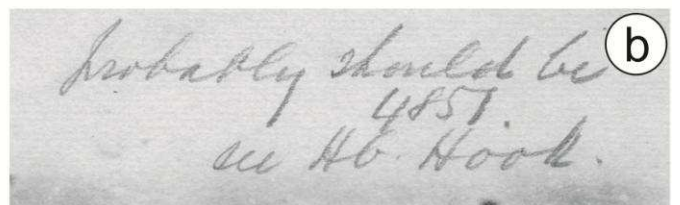 probably should be
4851.
see Hb. Hook.
b